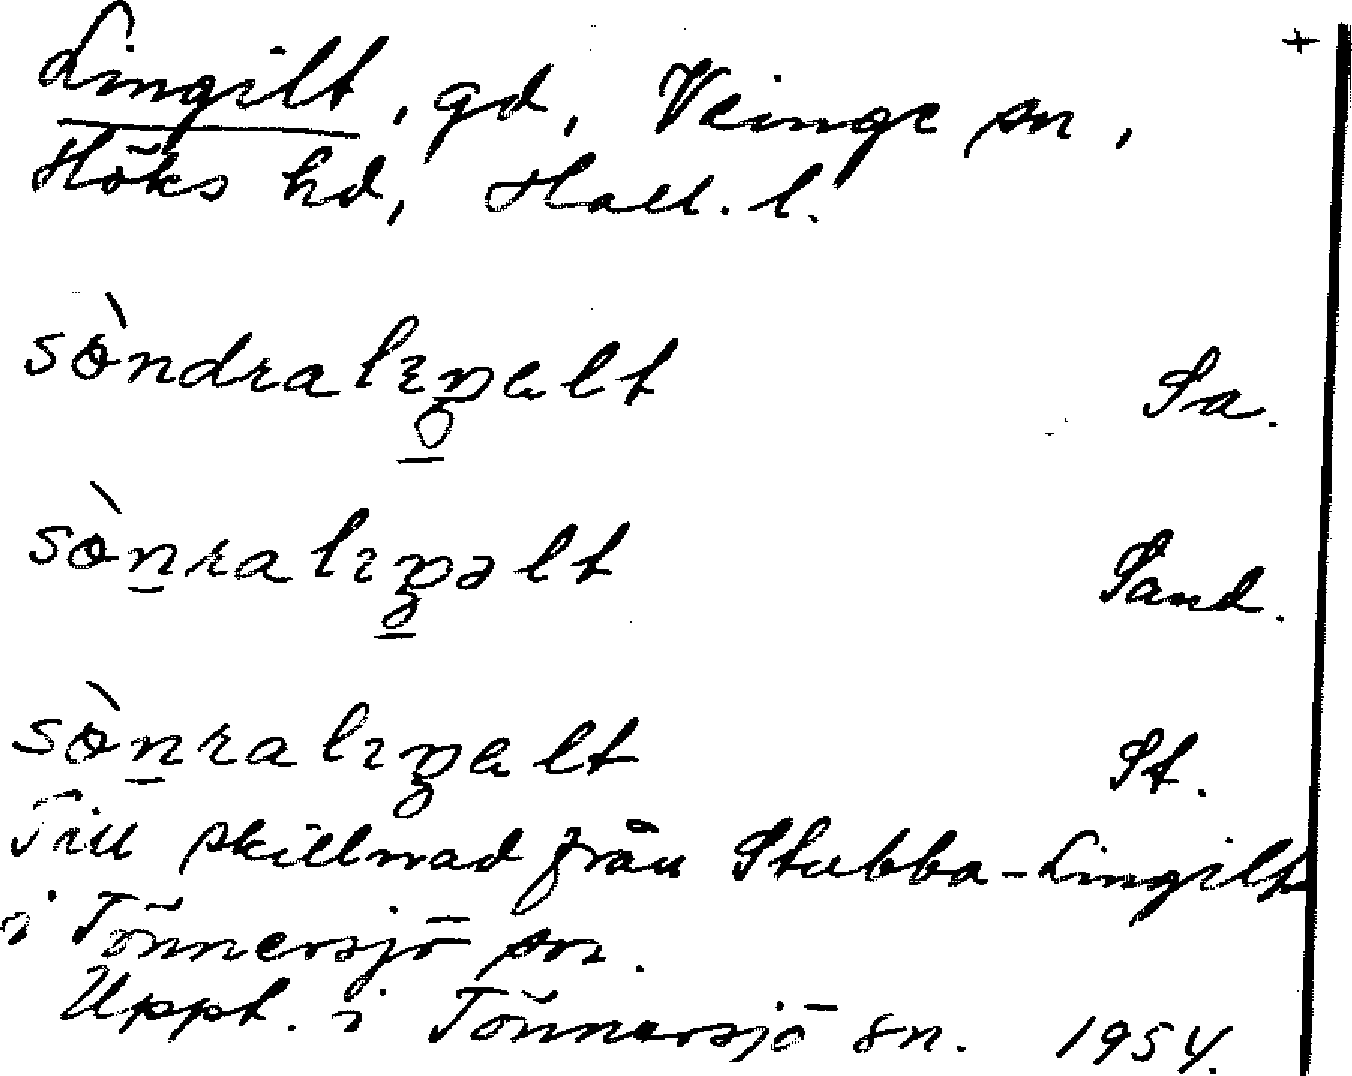 Lingilt, gd, Veinge sn, +
Höks hd, Hall. l.
sòndralıŋalt Sa.
sòn̠ralıŋəlt Sand.
sòn̠ralıŋalt St.
Till skillnad från Stubba-Lingilt
i Tönnersjö sn.
Uppt. i Tönnersjö sn. 1954.